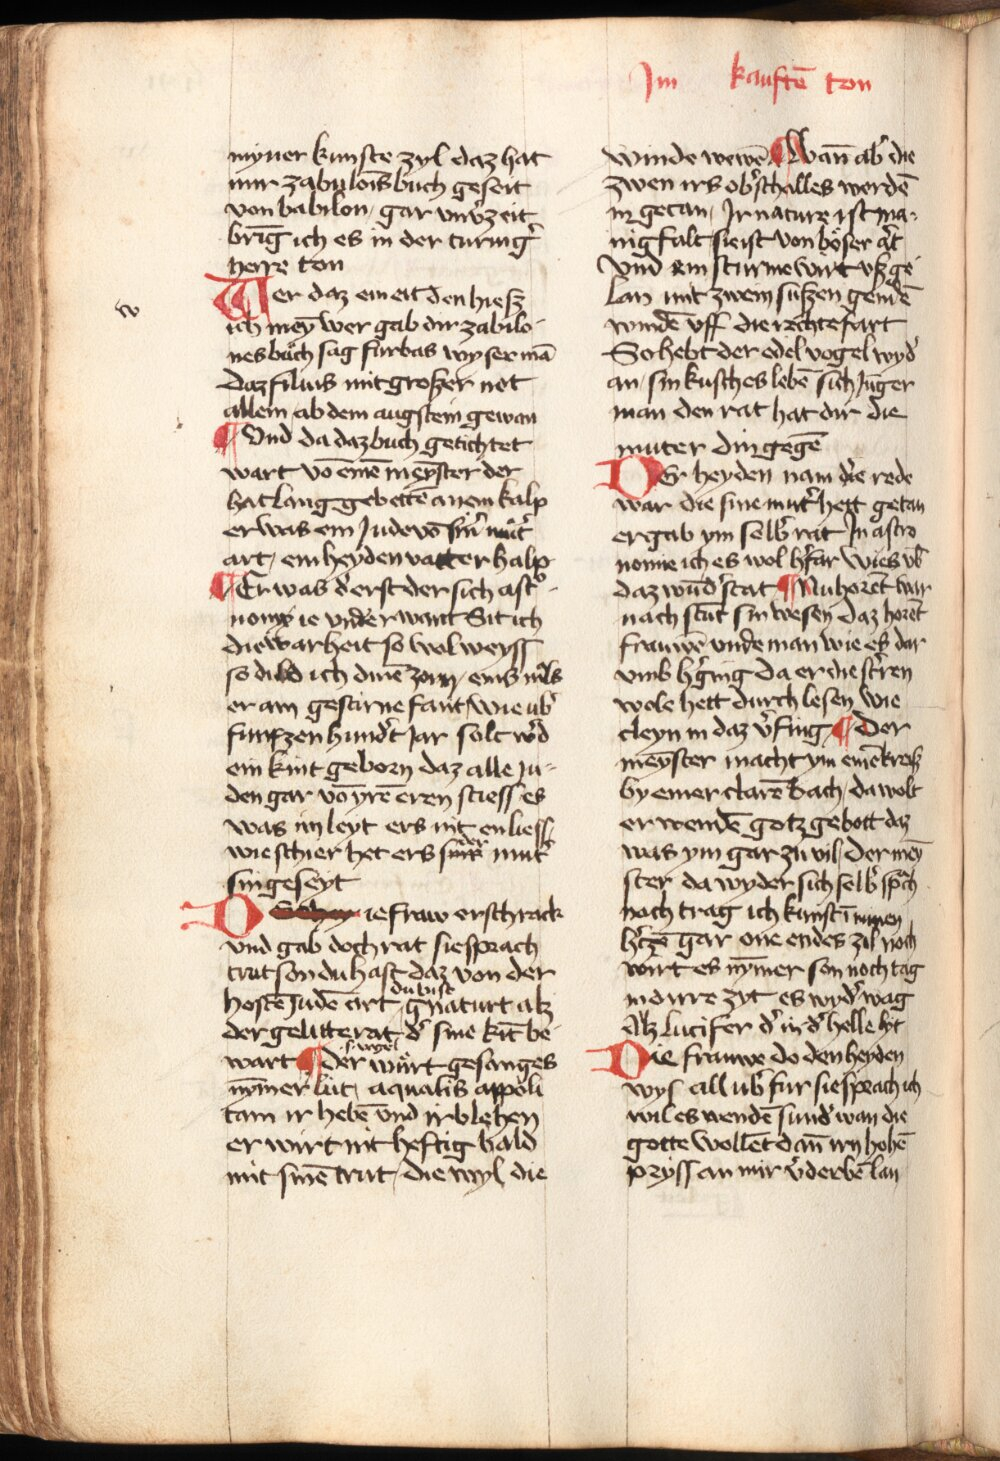 Im kauftē ton
mÿner kunste zyl daz hat
mir zabulons buch geseit
von babilon / gar vnv̉zeit
bring ich es in der turingꝰ
herre ton
w
Wer daz ein eit den hiesz
ich mey̅ wer gab dir zabilo-
nes bůch sag furbas wyser mā
daz filius mit groszer not
allein ab dem augstein gewan
¶ Vnd da daz buch getichtet
wart vō einē meyster der
hat lang gebettē an ein kalp
er was ein Jude vō sinr̉ mut̉
art / ein heyden vatter halp
¶ Er was d̉ erst der sich asto̊-
nomy ie vnderwant Sit ich
die warheit so wol weyss
so duld ich dinē zorn / eins mls
er am gestirne fant / wie ub̉
funfzen hund̉t Jar solt w̉d
ein kint geborn daz alle Ju-
den gar vō yrē eren stiess es
was im leyt ers nit enliess
wie schier het ers siner mut̉
sin geseyt
Die fraw erschrack
vnd gab doch rat sie sprach
trut son du hast daz von der
hostē Judē art du bist genaturt alz
der gelitterat d̉ sine kīt be-
wart ¶ der vogel würt gesanges
nȳmer lüt / aqualis appoli
tam ir hebē vnd ir blehen
er wirt nit heftig bald
mit sinē trut / die wyl die
winde wewē ¶ Wan̄ ab̉ die
zwen irs ob̉schalles werdē
in getan / Ir nature ist ma-
nigfalt sie ist von böser a̓t
Vnd ein sturme wirt vsz ge
lan mit zwein suszen gendē
windē vff die rechte fart
So hebt der edel vogel wyd̉
an / sin kusches lebē sich Jūger
man den rat hat dir die
muter din gegē
Der heyden nam d̉ie rede
war die sine mut̉ hett getan
er gab ym selb̉ rat In astro
nomie ich es wol h̓far wies vb̉
daz wūd̉ stat ¶ Nu horēt war
nach stūt sin wesen daz horēt
frauwē vnde man wie es dar
vmb h̓ging Da er die st̓ren
wole hett durch lesen wie
cleyn in daz v̓fing ¶ Der
meyster macht ym einē kreiſz
by einer clarē bach / da wolt
er wendē gotz gebott daz
was ym gar zu vil / Der mey
ster da wyder sich selb̉ sp̄ch
noch trag ich kunst ī minem
h̓tzē gar one endes zil noch
wirt es nȳmer son noch tag
in dirre zyt es wyd̉ wag
Alz Lucifer d̓ in d̓ helle lyt
Die frauwe do den heyden
wys all ub̉ fur sie spach ich
wil es wendē sund̉ wan die
gotte wollēt dan̄ irn hohē
pryss an mir v̓derbē lan